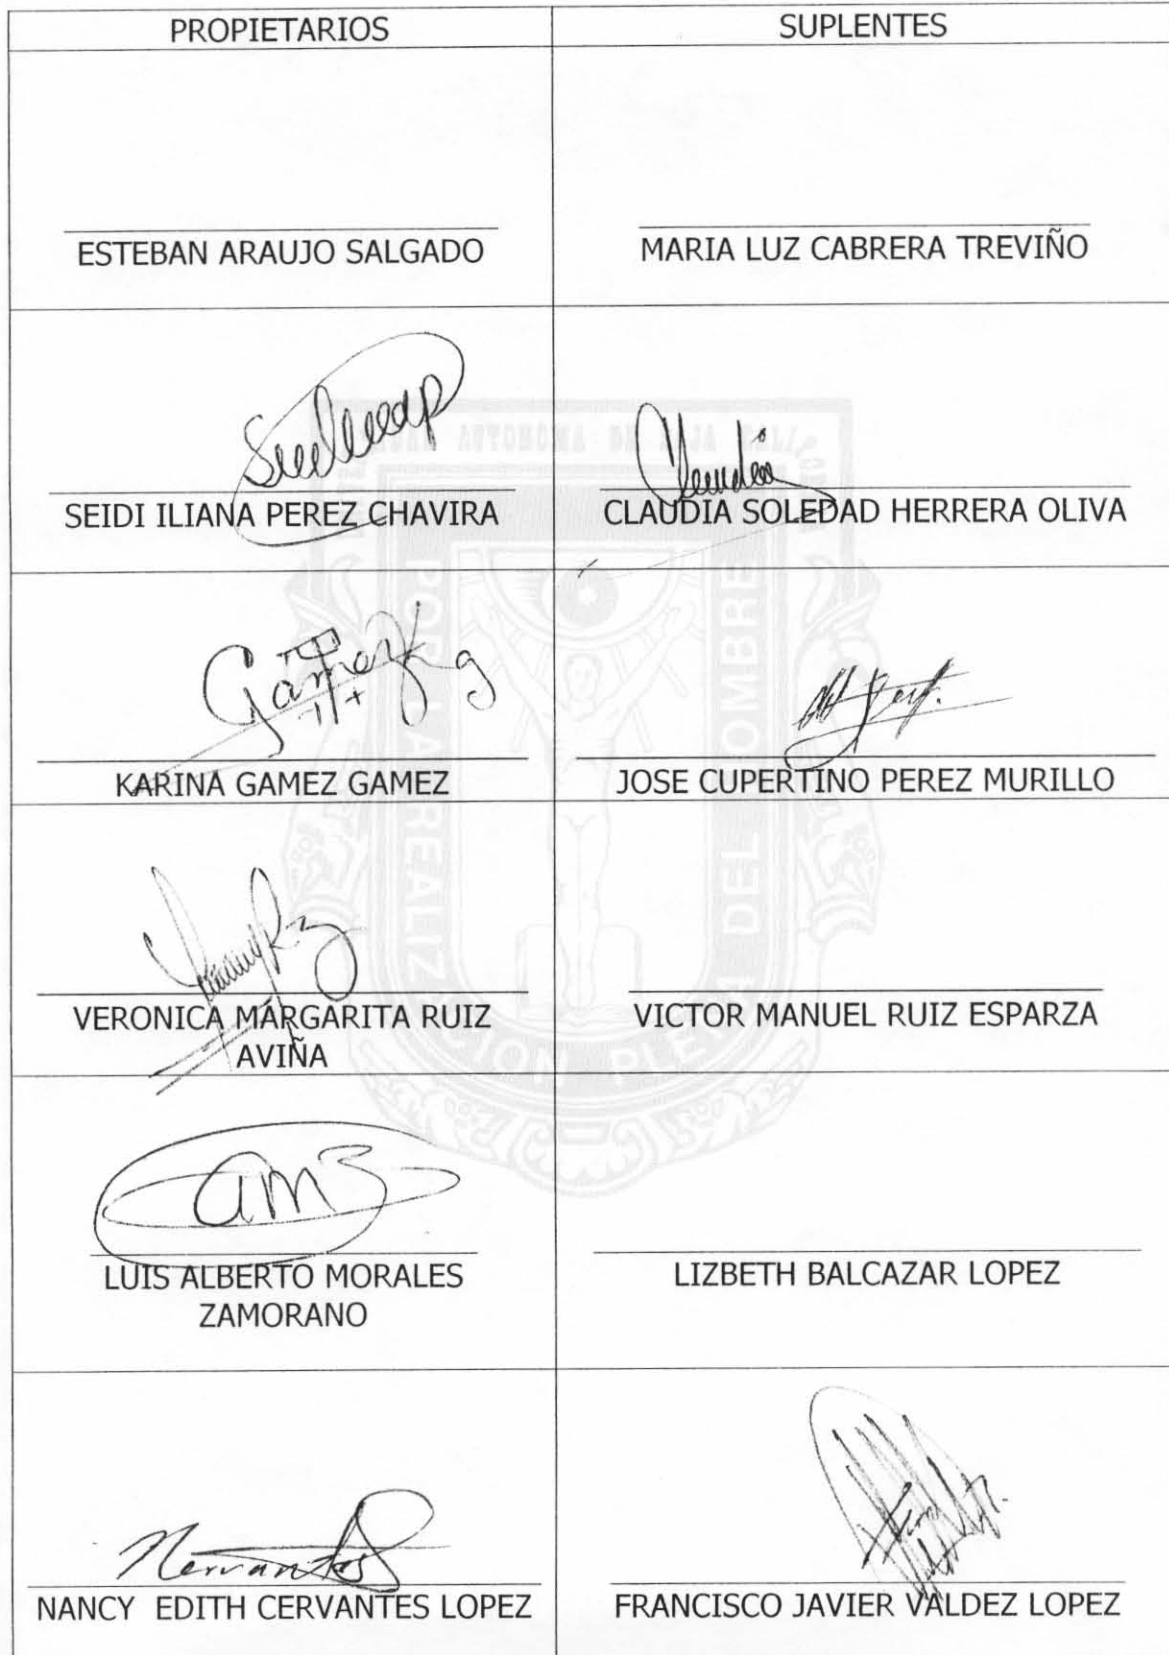 PROPIETARIOS
SUPLENTES
ESTEBAN ARAUJO SALGADO
MARIA LUZ CABRERA TREVIÑO
SEIDI ILIANA PEREZ CHAVIRA
CLAUDIA SOLEDAD HERRERA OLIVA
KARINA GAMEZ GAMEZ
JOSE CUPERTINO PEREZ MURILLO
VERONICA MARGARITA RUIZ
AVIÑA
VICTOR MANUEL RUIZ ESPARZA
LUIS ALBERTO MORALES
ZAMORANO
LIZBETH BALCAZAR LOPEZ
NANCY EDITH CERVANTES LOPEZ
FRANCISCO JAVIER VALDEZ LOPEZ
POR LA REALIZACION PLENA DEL HOMBRE